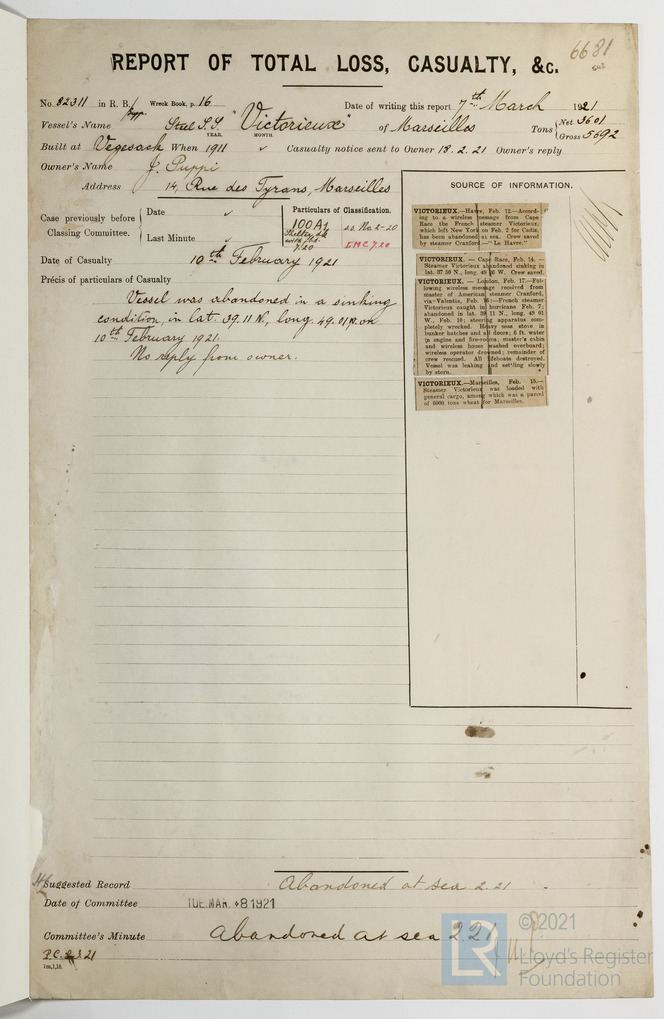 6681
REPORT OF TOTAL LOSS, CASUALTY, &c.
No. 82311 in R. B. Wreck Book, p. 16 Date of writing this report 7th March 1921
Supp.
Vessel's Name Steel S.S. "Victorieux" of Marseilles Tons { Net 3601 Gross 5692
YEAR. MONTH.
Built at Vegesack When 1911 Casualty notice sent to Owner 18.2.21 Owner's reply
Owner's Name J. Puppi
Address 14, Rue des Tyrans, Marseilles
Case previously before Classing Committee. { Date Last Minute
Particulars of Classification.
100A1
7.20
Date of Casualty 10th February 1921
Précis of particulars of Casualty
Vessel was abandoned in a sinking
condition, in lat. 39.11 N., long. 49.01 W. on
10th February 1921.
No reply from owner.
SOURCE OF INFORMATION.
VICTORIEUX.—Havre, Feb. 12.—Accord-
ing to a wireless message from Cape
Race the French steamer Victorieux,
which left New York on Feb. 2 for Cadiz,
has been abandoned at sea. Crew saved
by steamer Cranford.—"Le Havre."
VICTORIEUX. — Cape Race, Feb. 14. —
Steamer Victorieux abandoned sinking in
lat. 37 50 N., long. 49 W. Crew saved.
VICTORIEUX. — London, Feb. 17.—Fol-
lowing wireless message received from
master of American steamer Cranford,
via Valentia, Feb. :—French steamer
Victorieux caught in hurricane Feb. 7;
abandoned in lat. 39 11 N., long. 49 01
W., Feb. 10; steering apparatus com-
pletely wrecked. Heavy seas stove in
bunker hatches and all doors; 6 ft. water
in engine and fire-rooms; master's cabin
and wireless house washed overboard;
wireless operator drowned; remainder of
crew rescued. All lifeboats destroyed.
Vessel was leaking and settling slowly
by stern.
VICTORIEUX.—Marseilles, Feb. 15.—
Steamer Victorieux was loaded with
general cargo, among which was a parcel
of 6000 tons wheat for Marseilles.
Suggested Record Abandoned at sea 2.21
Date of Committee TUE. MAR. 8 1921
Committee's Minute Abandoned at sea 2.21
LR ©2021 Lloyd's Register Foundation